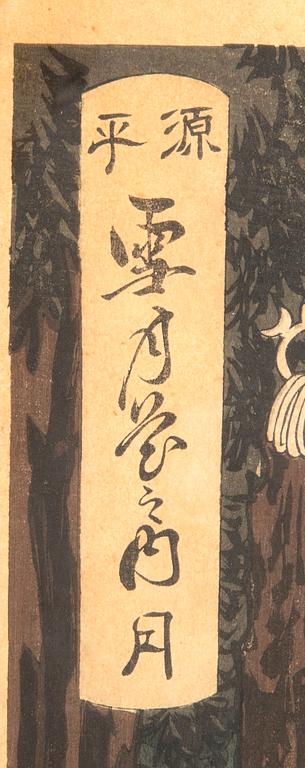 源平
雪月花之内月